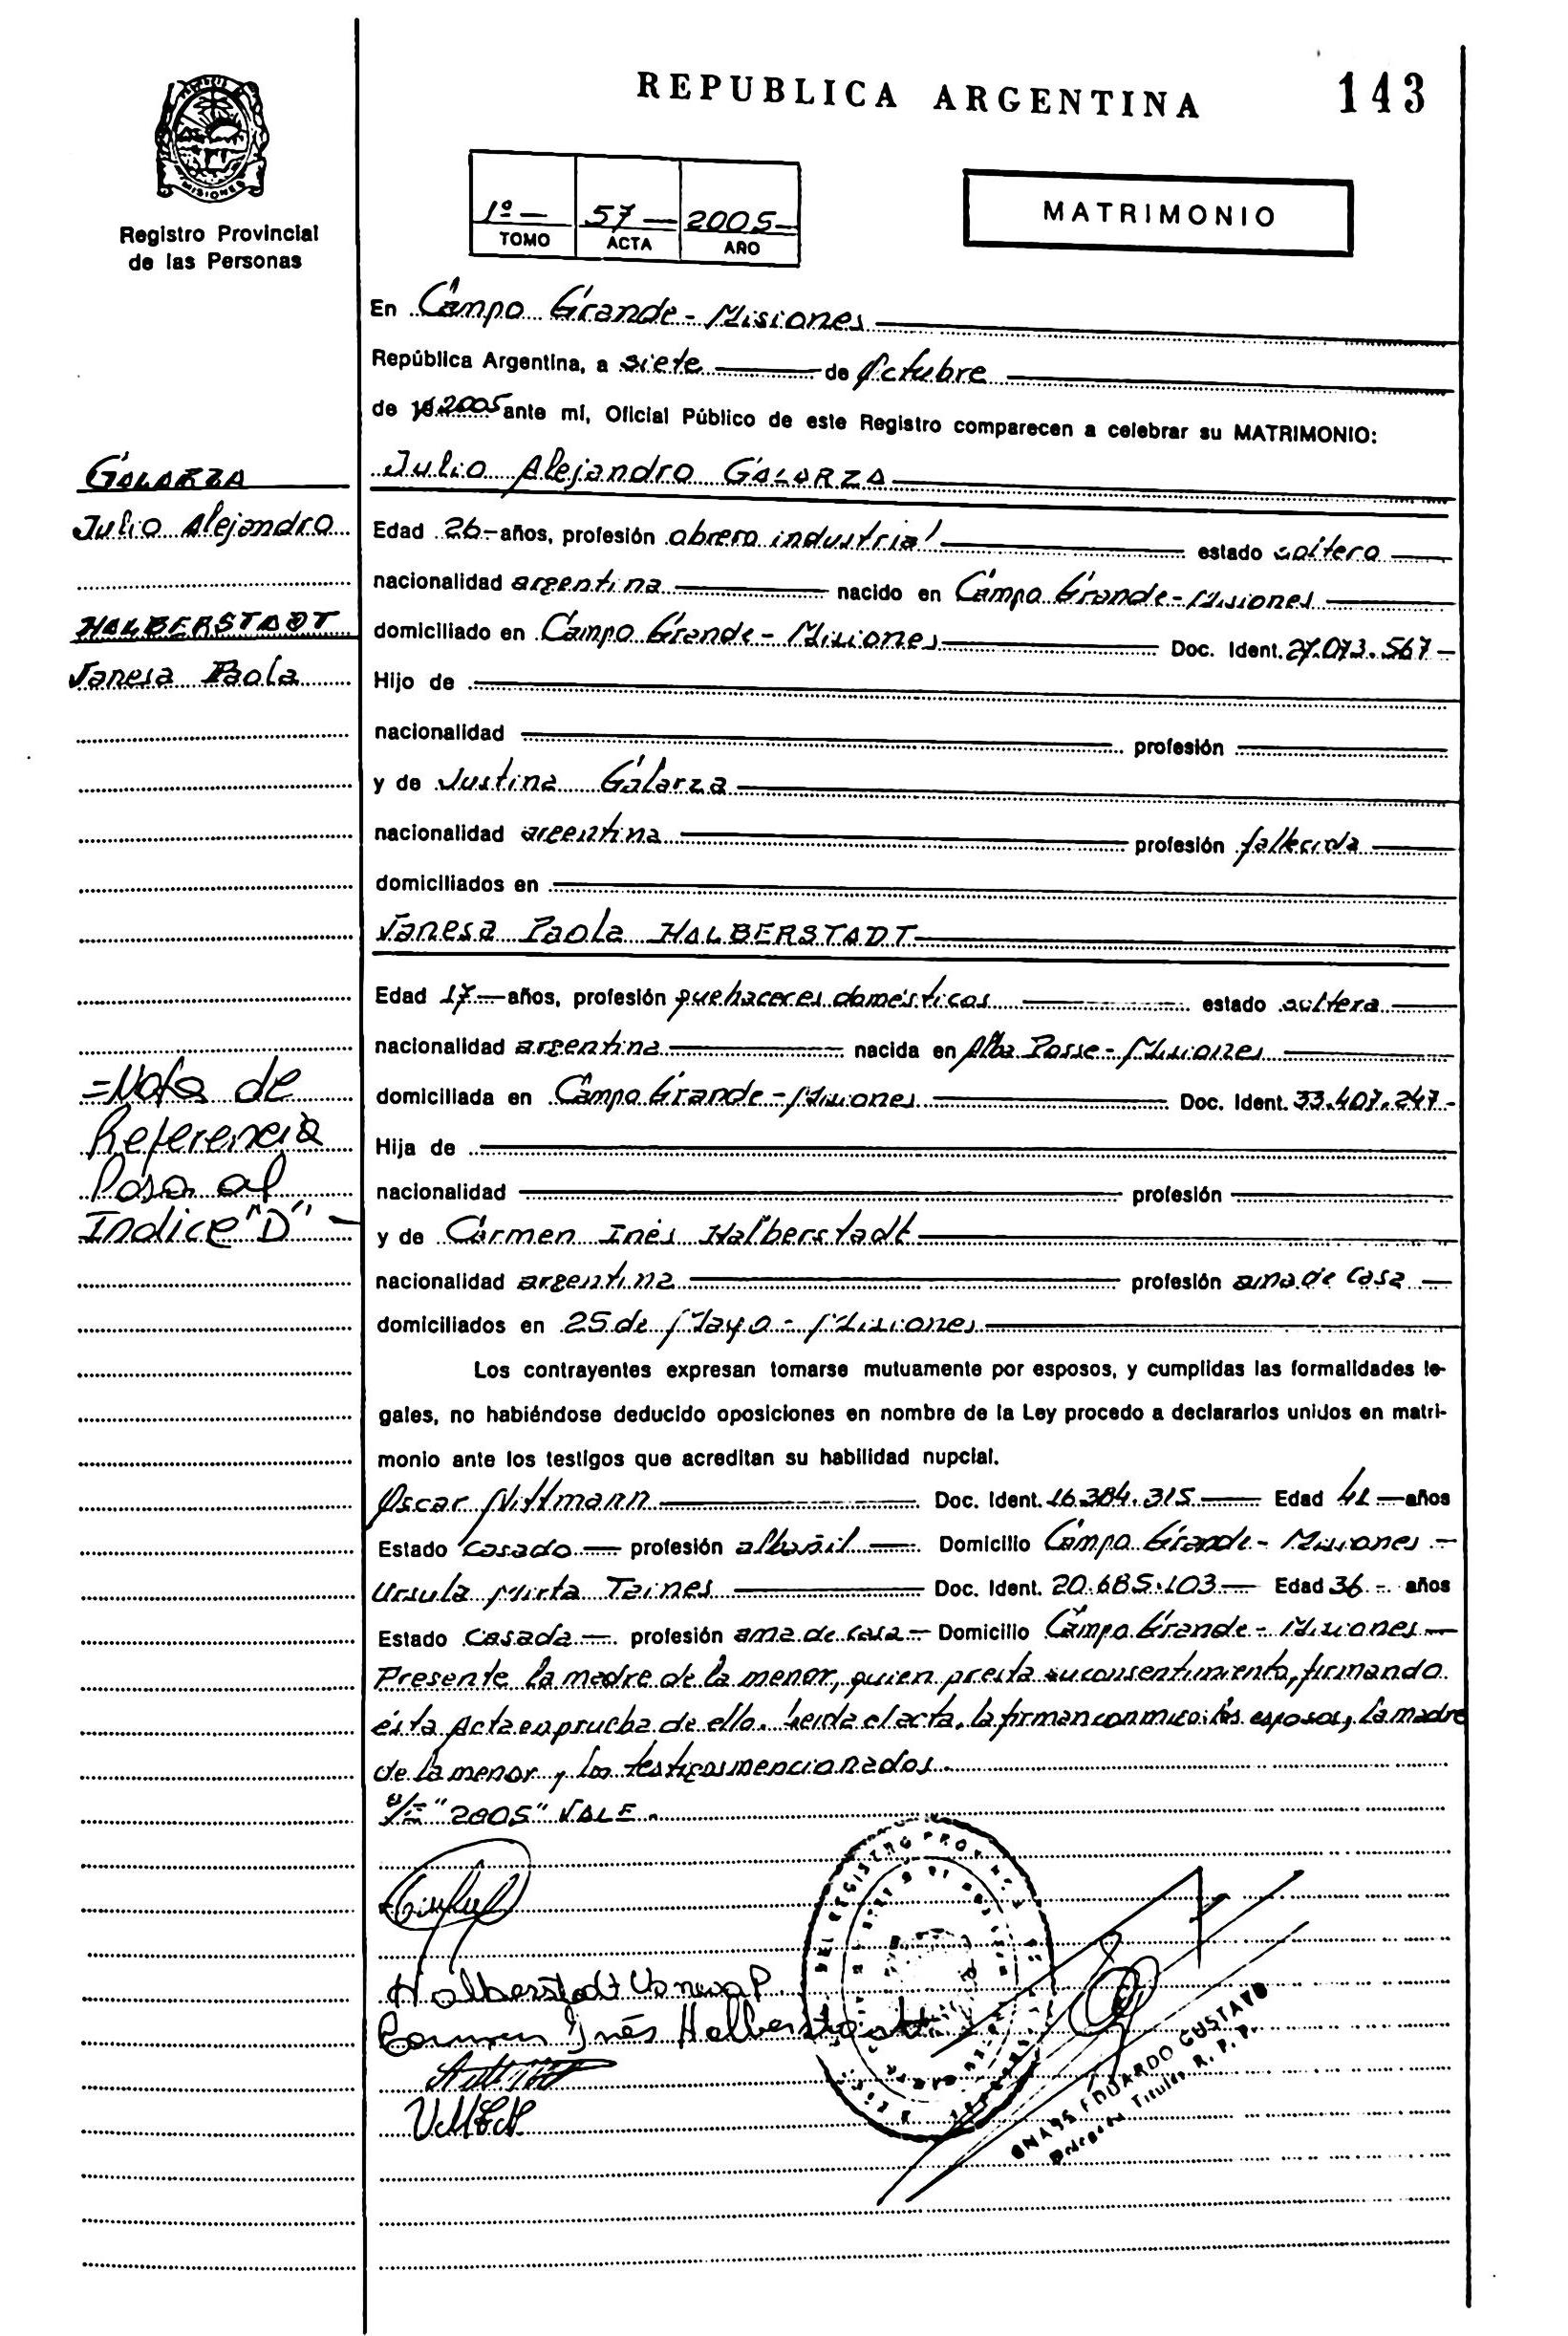 REPUBLICA ARGENTINA 143
MISIONES
Registro Provincial
de las Personas
1º — 57 — 2005 —
TOMO ACTA AÑO
MATRIMONIO
En Campo Grande - Misiones
República Argentina, a siete de Octubre
de 19 2005 ante mí, Oficial Público de este Registro comparecen a celebrar su MATRIMONIO:
GALARZA
Julio Alejandro
HALBERSTADT
Vanesa Paola
=Nota de
Referencia
Pasa al
Indice "D" -
Julio Alejandro GALARZA
Edad 26 - años, profesión obrero industrial estado soltero
nacionalidad argentina nacido en Campo Grande - Misiones
domiciliado en Campo Grande - Misiones Doc. Ident. 27.073.567 -
Hijo de
nacionalidad profesión
y de Justina Galarza
nacionalidad argentina profesión fallecida
domiciliados en
Vanesa Paola HALBERSTADT
Edad 17 - años, profesión quehaceres domésticos estado soltera
nacionalidad argentina nacida en Alba Posse - Misiones
domiciliada en Campo Grande - Misiones Doc. Ident. 33.407.247 -
Hija de
nacionalidad profesión
y de Carmen Inés Halberstadt
nacionalidad argentina profesión ama de casa
domiciliados en 25 de Mayo - Misiones
Los contrayentes expresan tomarse mutuamente por esposos, y cumplidas las formalidades le-
gales, no habiéndose deducido oposiciones en nombre de la Ley procedo a declararlos unidos en matri-
monio ante los testigos que acreditan su habilidad nupcial.
Oscar Nittmann Doc. Ident. 16.384.315 Edad 41 - años
Estado casado profesión albañil Domicilio Campo Grande - Misiones -
Ursula Mirta Taines Doc. Ident. 20.685.103 Edad 36 - años
Estado casada profesión ama de casa Domicilio Campo Grande - Misiones
Presente la madre de la menor, quien presta su consentimiento, firmando
ésta Acta en prueba de ello. Leída el acta, la firman conmigo: los esposos, la madre
de la menor y los testigos mencionados.
S/E "2005" VALE.
Halberstadt Vanesa P.
Carmen Inés Halberstadt
EDUARDO GUSTAVO
Delegado Titular R. P. P.